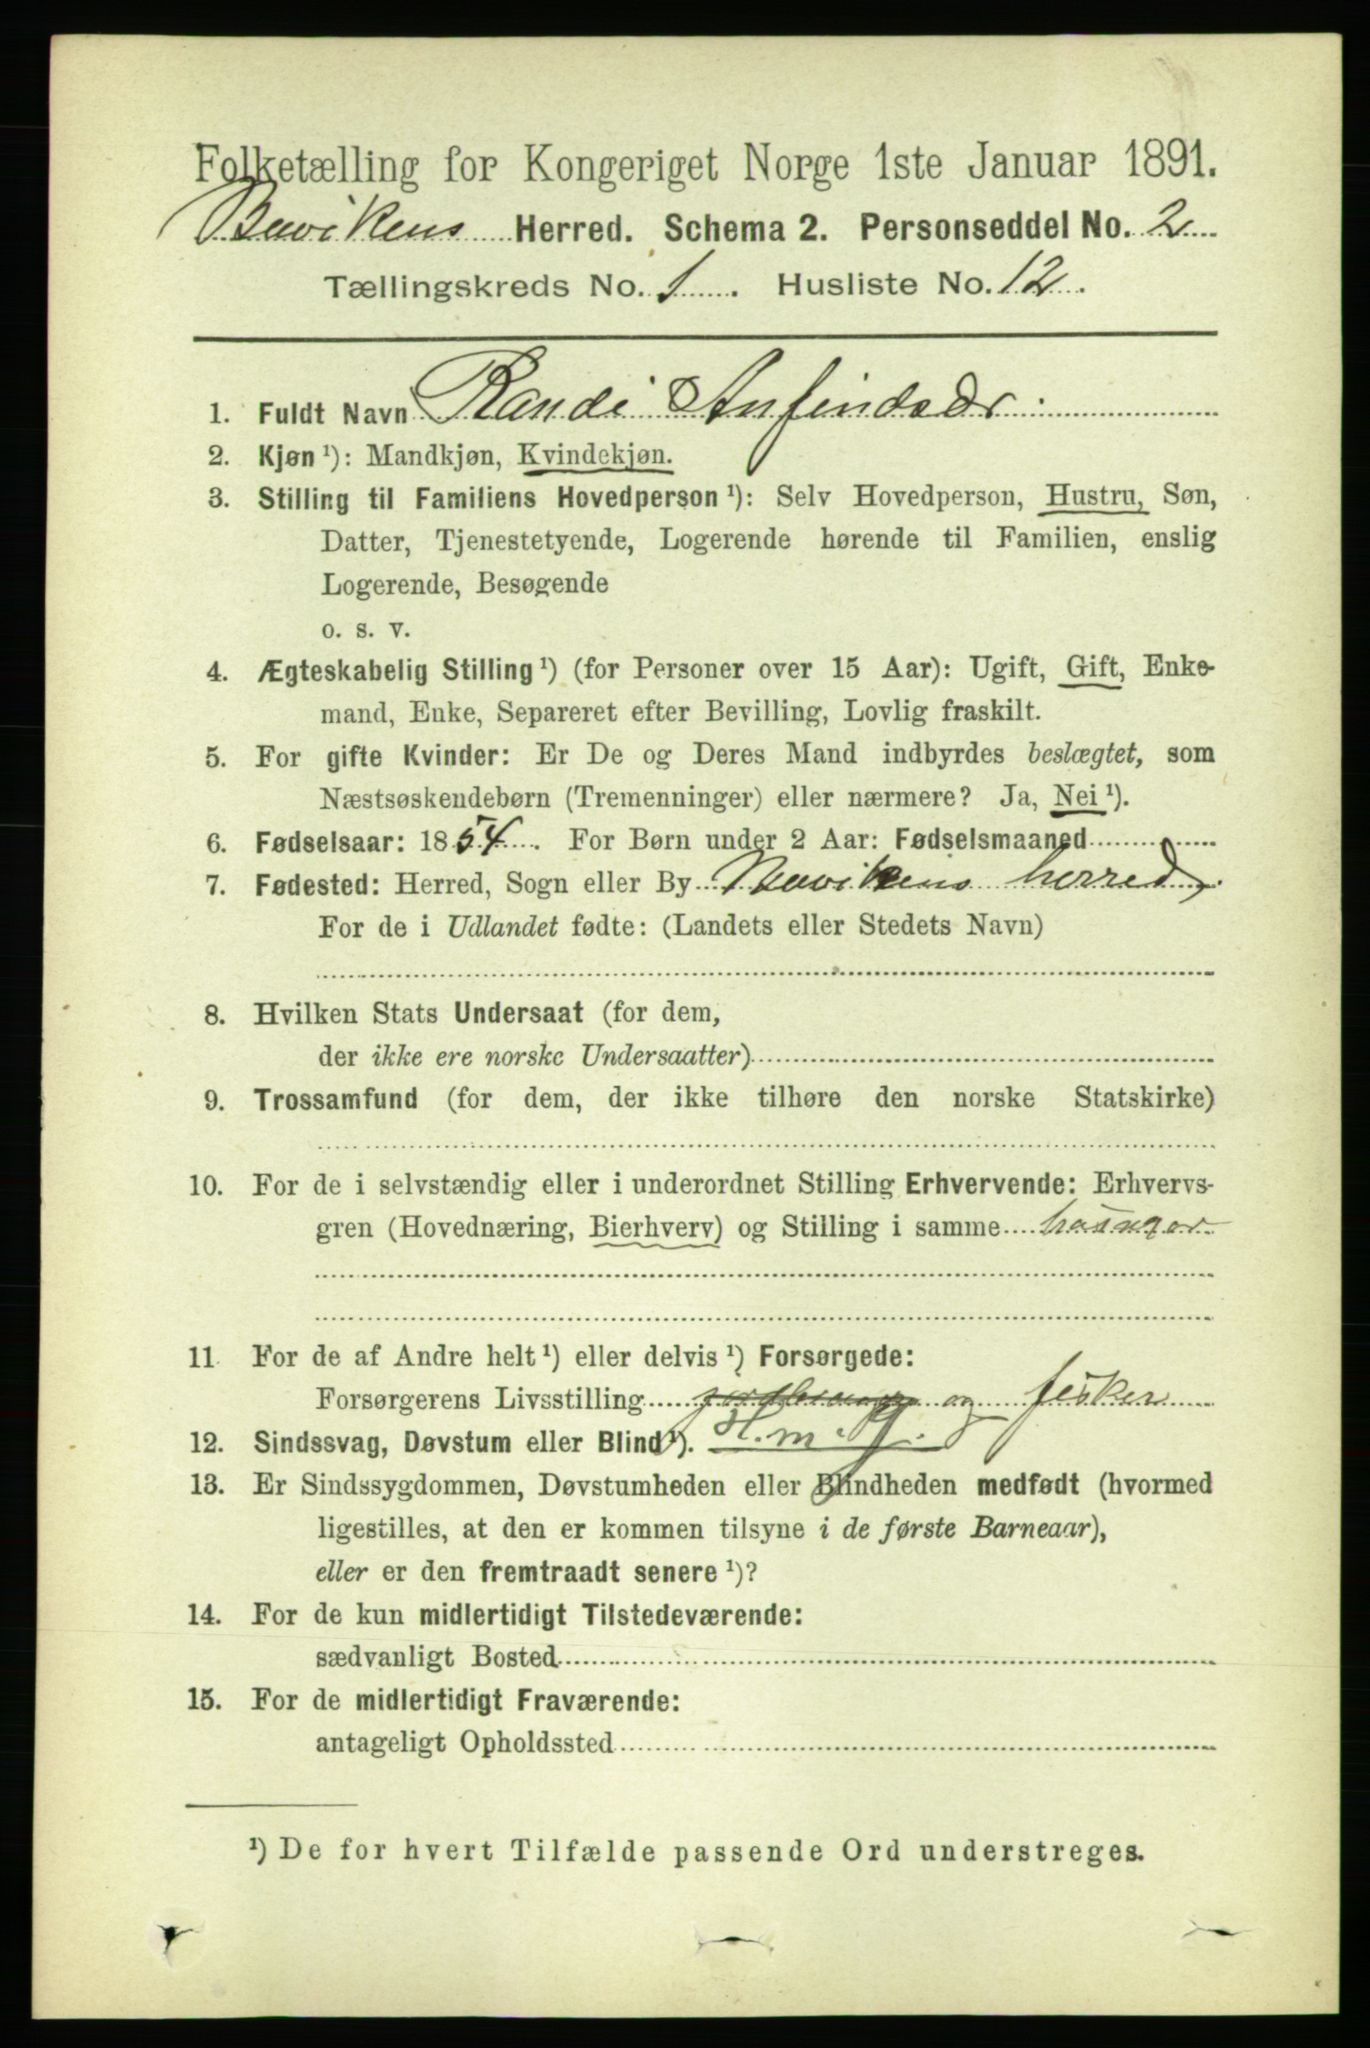 Folketælling for Kongeriget Norge 1ste Januar 1891.
Buvikens Herred. Schema 2. Personseddel No. 2
Tællingskreds No. 1. Husliste No. 12.
1. Fuldt Navn Randi Anfindsdr.
2. Kjøn ¹): Mandkjøn, Kvindekjøn.
3. Stilling til Familiens Hovedperson ¹): Selv Hovedperson, Hustru, Søn,
Datter, Tjenestetyende, Logerende hørende til Familien, enslig
Logerende, Besøgende
o. s. v.
4. Ægteskabelig Stilling ¹) (for Personer over 15 Aar): Ugift, Gift, Enke-
mand, Enke, Separeret efter Bevilling, Lovlig fraskilt.
5. For gifte Kvinder: Er De og Deres Mand indbyrdes beslægtet, som
Næstsøskendebørn (Tremenninger) eller nærmere? Ja, Nei ¹).
6. Fødselsaar: 1854. For Børn under 2 Aar: Fødselsmaaned
7. Fødested: Herred, Sogn eller By Buvikens herred,
For de i Udlandet fødte: (Landets eller Stedets Navn)
8. Hvilken Stats Undersaat (for dem,
der ikke ere norske Undersaatter)
9. Trossamfund (for dem, der ikke tilhøre den norske Statskirke)
10. For de i selvstændig eller i underordnet Stilling Erhvervende: Erhvervs-
gren (Hovednæring, Bierhverv) og Stilling i samme
11 For de af Andre helt ¹) eller delvis ¹) Forsørgede:
Forsørgerens Livsstilling og fisker
12. Sindssvag, Døvstum eller Blind ¹). H.m.
13. Er Sindssygdommen, Døvstumheden eller Blindheden medfødt (hvormed
ligestilles, at den er kommen tilsyne i de første Barneaar),
eller er den fremtraadt senere ¹)?
14. For de kun midlertidigt Tilstedeværende:
sædvanligt Bosted
15. For de midlertidigt Fraværende:
antageligt Opholdssted
¹) De for hvert Tilfælde passende Ord understreges.